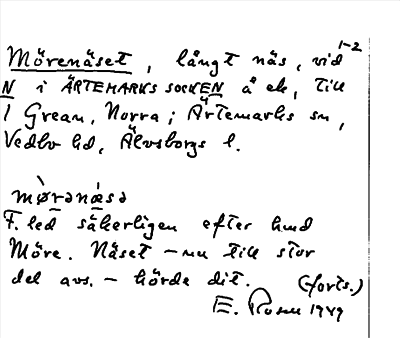 1-2
Mörenäset, långt näs, vid
N i ÄRTEMARKS SOCKEN å ek, till
1 Grean, Norra; Ärtemarks sn,
Vedbo hd, Älvsborgs l.
mø̀rənǽsə
F. led säkerligen efter hmd
Möre. Näset – nu till stor
del avs. – hörde dit. (forts.)
E. Rosell 1949